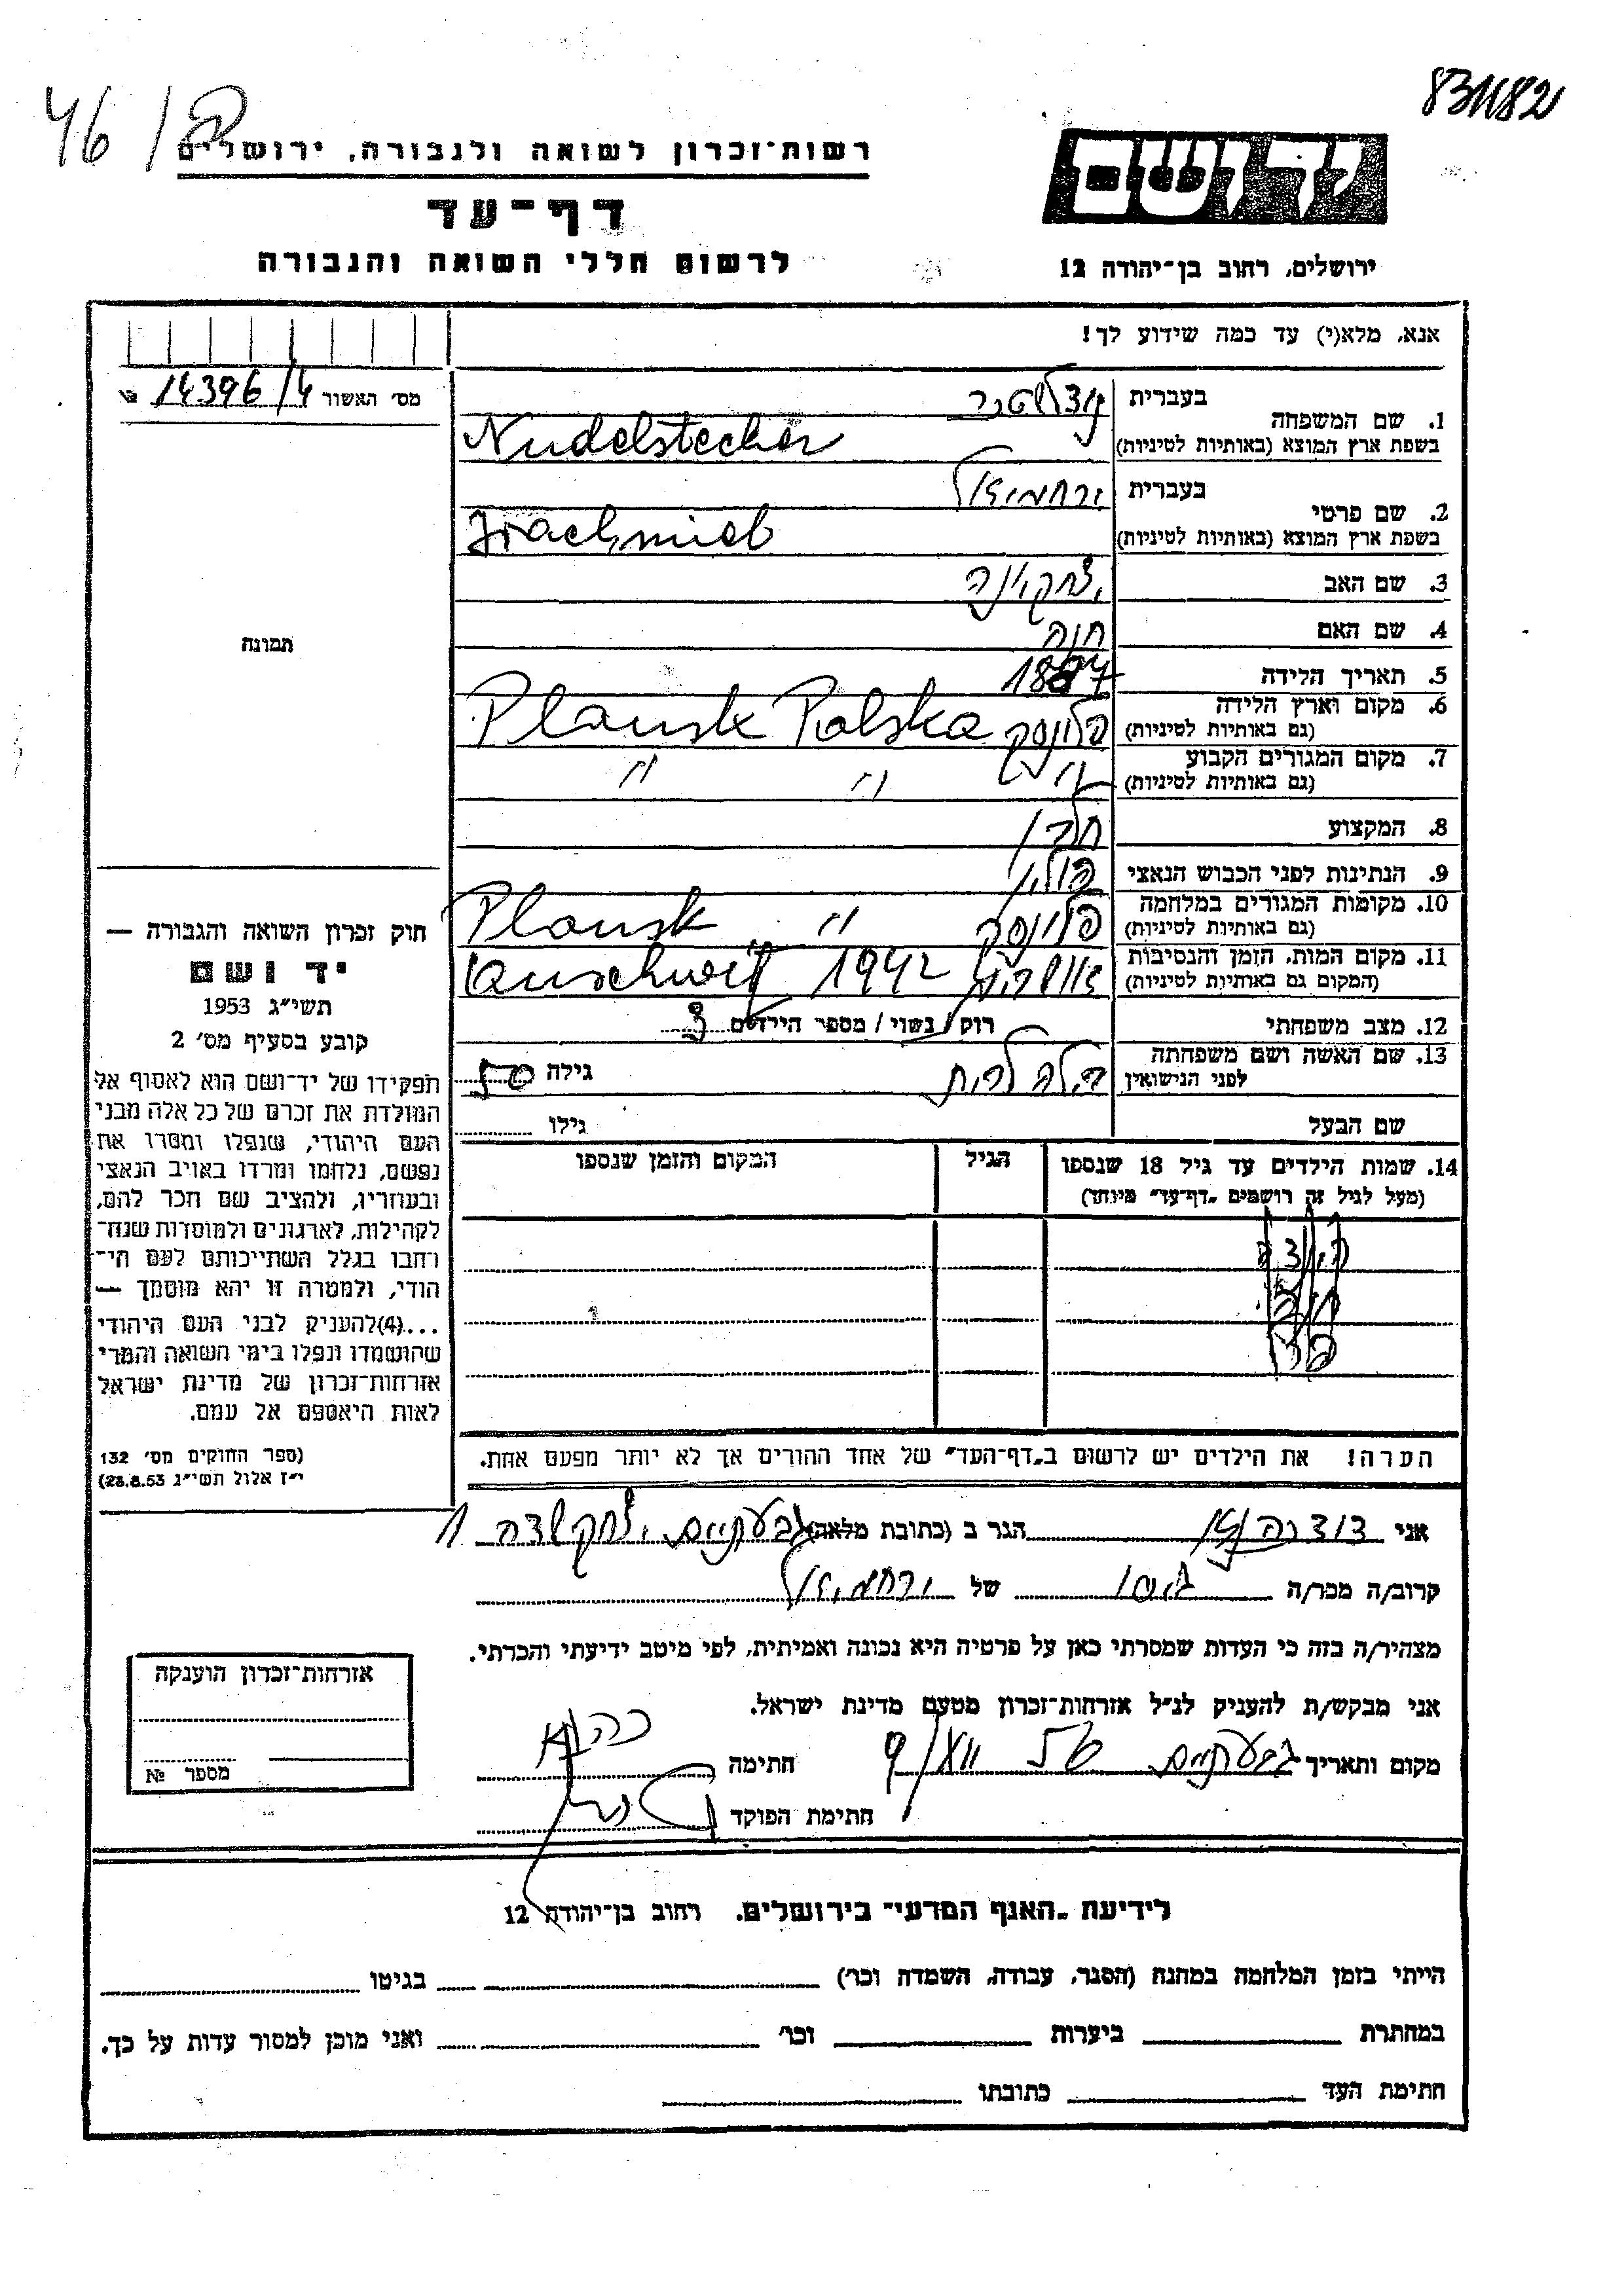 831182
46 / פ
רשות-זכרון לשואה ולגבורה, ירושלים
דף-עד
לרשום חללי השואה והגבורה
יד ושם
ירושלים, רחוב בן-יהודה 12
אנא, מלא(י) עד כמה שידוע לך!
מס' האשור 14396/4 №
תמונה
1. שם המשפחה בעברית
בשפת ארץ המוצא (באותיות לטיניות) Nudelstecher
2. שם פרטי בעברית ירחמיאל
בשפת ארץ המוצא (באותיות לטיניות) Irachmiel
3. שם האב יצחק יונה
4. שם האם חוה
5. תאריך הלידה
6. מקום וארץ הלידה פלונסק Plonsk Polska
(גם באותיות לטיניות)
7. מקום המגורים הקבוע " " "
(גם באותיות לטיניות)
8. המקצוע
9. הנתינות לפני הכבוש הנאצי פולין
10. מקומות המגורים במלחמה פלונסק " Plonsk
(גם באותיות לטיניות)
11. מקום המות, הזמן והנסיבות אושויץ 1942 Auschwitz
(המקום גם באותיות לטיניות)
12. מצב משפחתי רוק/נשוי/מספר הילדים 3
13. שם האשה ושם משפחתה לפני הנישואין גילה 50
שם הבעל גילו
14. שמות הילדים עד גיל 18 שנספו הגיל המקום והזמן שנספו
(מעל לגיל זה רושמים "דף-עד" מיוחד)
הערה! את הילדים יש לרשום ב"דף-העד" של אחד ההורים אך לא יותר מפעם אחת.
חוק זכרון השואה והגבורה —
יד ושם
תשי"ג 1953
קובע בסעיף מס' 2
תפקידו של יד-ושם הוא לאסוף אל
המולדת את זכרם של כל אלה מבני
העם היהודי, שנפלו ומסרו את
נפשם, נלחמו ומרדו באויב הנאצי
ובעוזריו, ולהציב שם וזכר להם,
לקהילות, לארגונים ולמוסדות שנח-
רבו בגלל השתייכותם לעם הי-
הודי, ולמטרה זו יהא מוסמך —
...(4)להעניק לבני העם היהודי
שהושמדו ונפלו בימי השואה והמרי
אזרחות-זכרון של מדינת ישראל
לאות היאספם אל עמם.
(ספר החוקים מס' 132
י"ז אלול תשי"ג 28.8.53)
אני הגר ב (כתובת מלאה) גבעתיים יצחק שדה 1
קרוב/ה מכר/ה גיסו של ירחמיאל
מצהיר/ה בזה כי העדות שמסרתי כאן על פרטיה היא נכונה ואמיתית, לפי מיטב ידיעתי והכרתי.
אני מבקש/ת להעניק לנ"ל אזרחות-זכרון מטעם מדינת ישראל.
מקום ותאריך גבעתיים חתימה
חתימת הפוקד
אזרחות-זכרון הוענקה
מספר №
לידיעת "האגף המדעי" בירושלים, רחוב בן-יהודה 12
הייתי בזמן המלחמה במחנה (הסגר, עבודה, השמדה וכו') בגיטו
במחתרת ביערות וכו' ואני מוכן למסור עדות על כך.
חתימת העד כתובתו